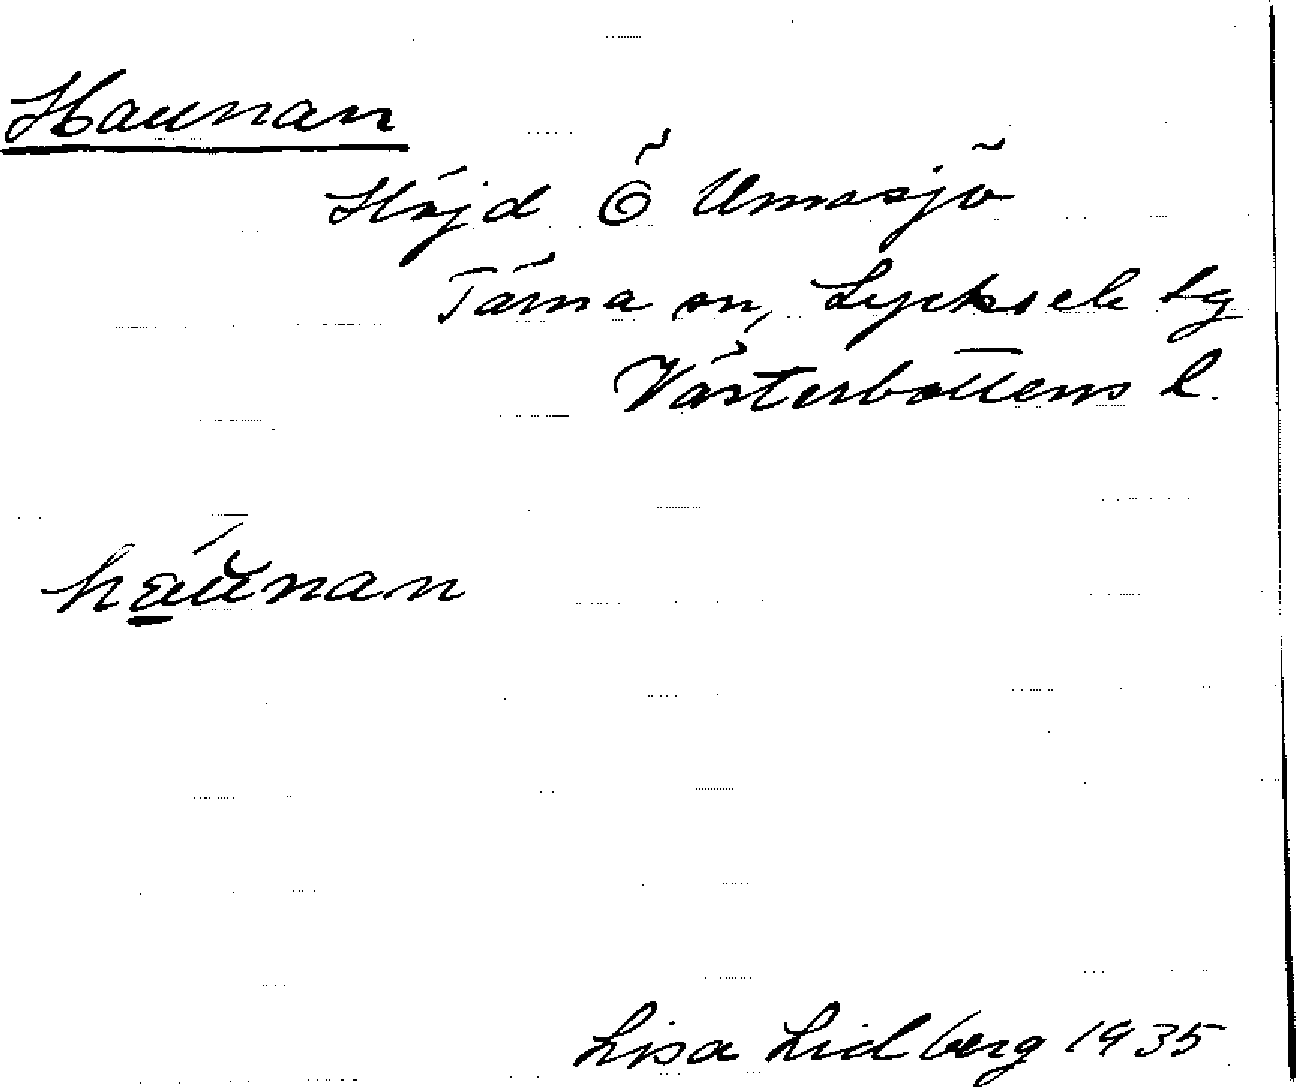 Haunan
Höjd Ö Umasjö
Tärna sn, Lycksele lg
Västerbottens l.
háu̯nan
Lisa Lidberg 1935